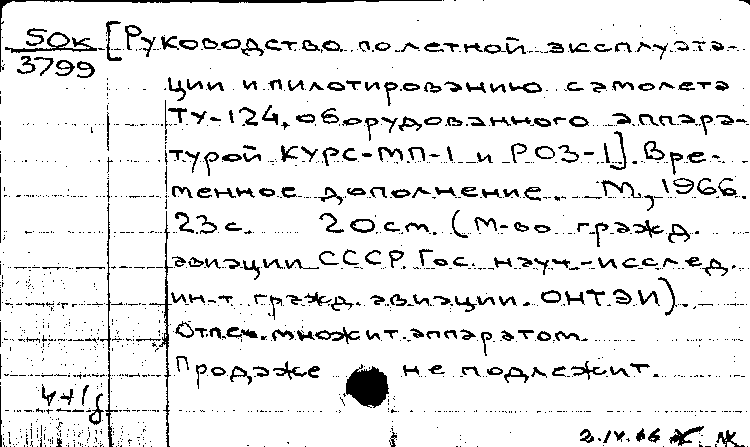 50к [Руководство по летной эксплуата-
3799
ции и пилотированию самолета
Ту-124, оборудованного аппара-
турой КУРС-МП-1 и РОЗ-1]. Вре-
менное дополнение. М., 1966.
23с. 20см. (М-во гражд.
авиации СССР. Гос. науч.-исслед.
ин-т гражд. авиации. ОНТЭИ).
Отпеч. множит. аппаратом.
Продаже не подлежит.
2.IV.66